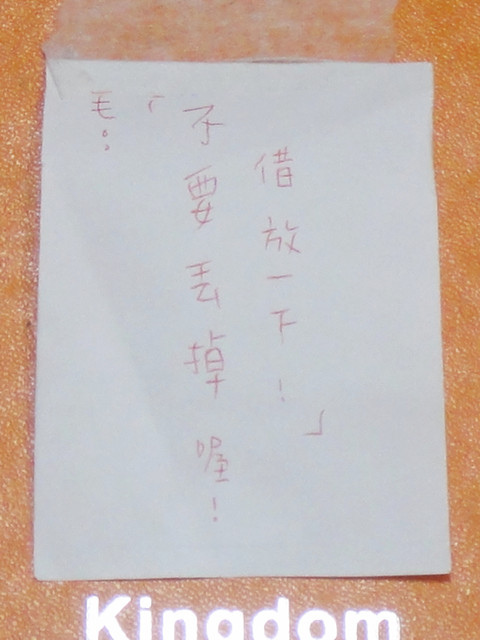 毛：
「不要丟掉喔！
借放一下！」
Kingdom